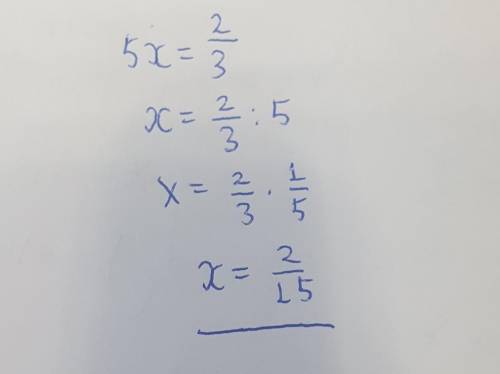 5x = 2/3
x = 2/3 : 5
x = 2/3 · 1/5
x = 2/15